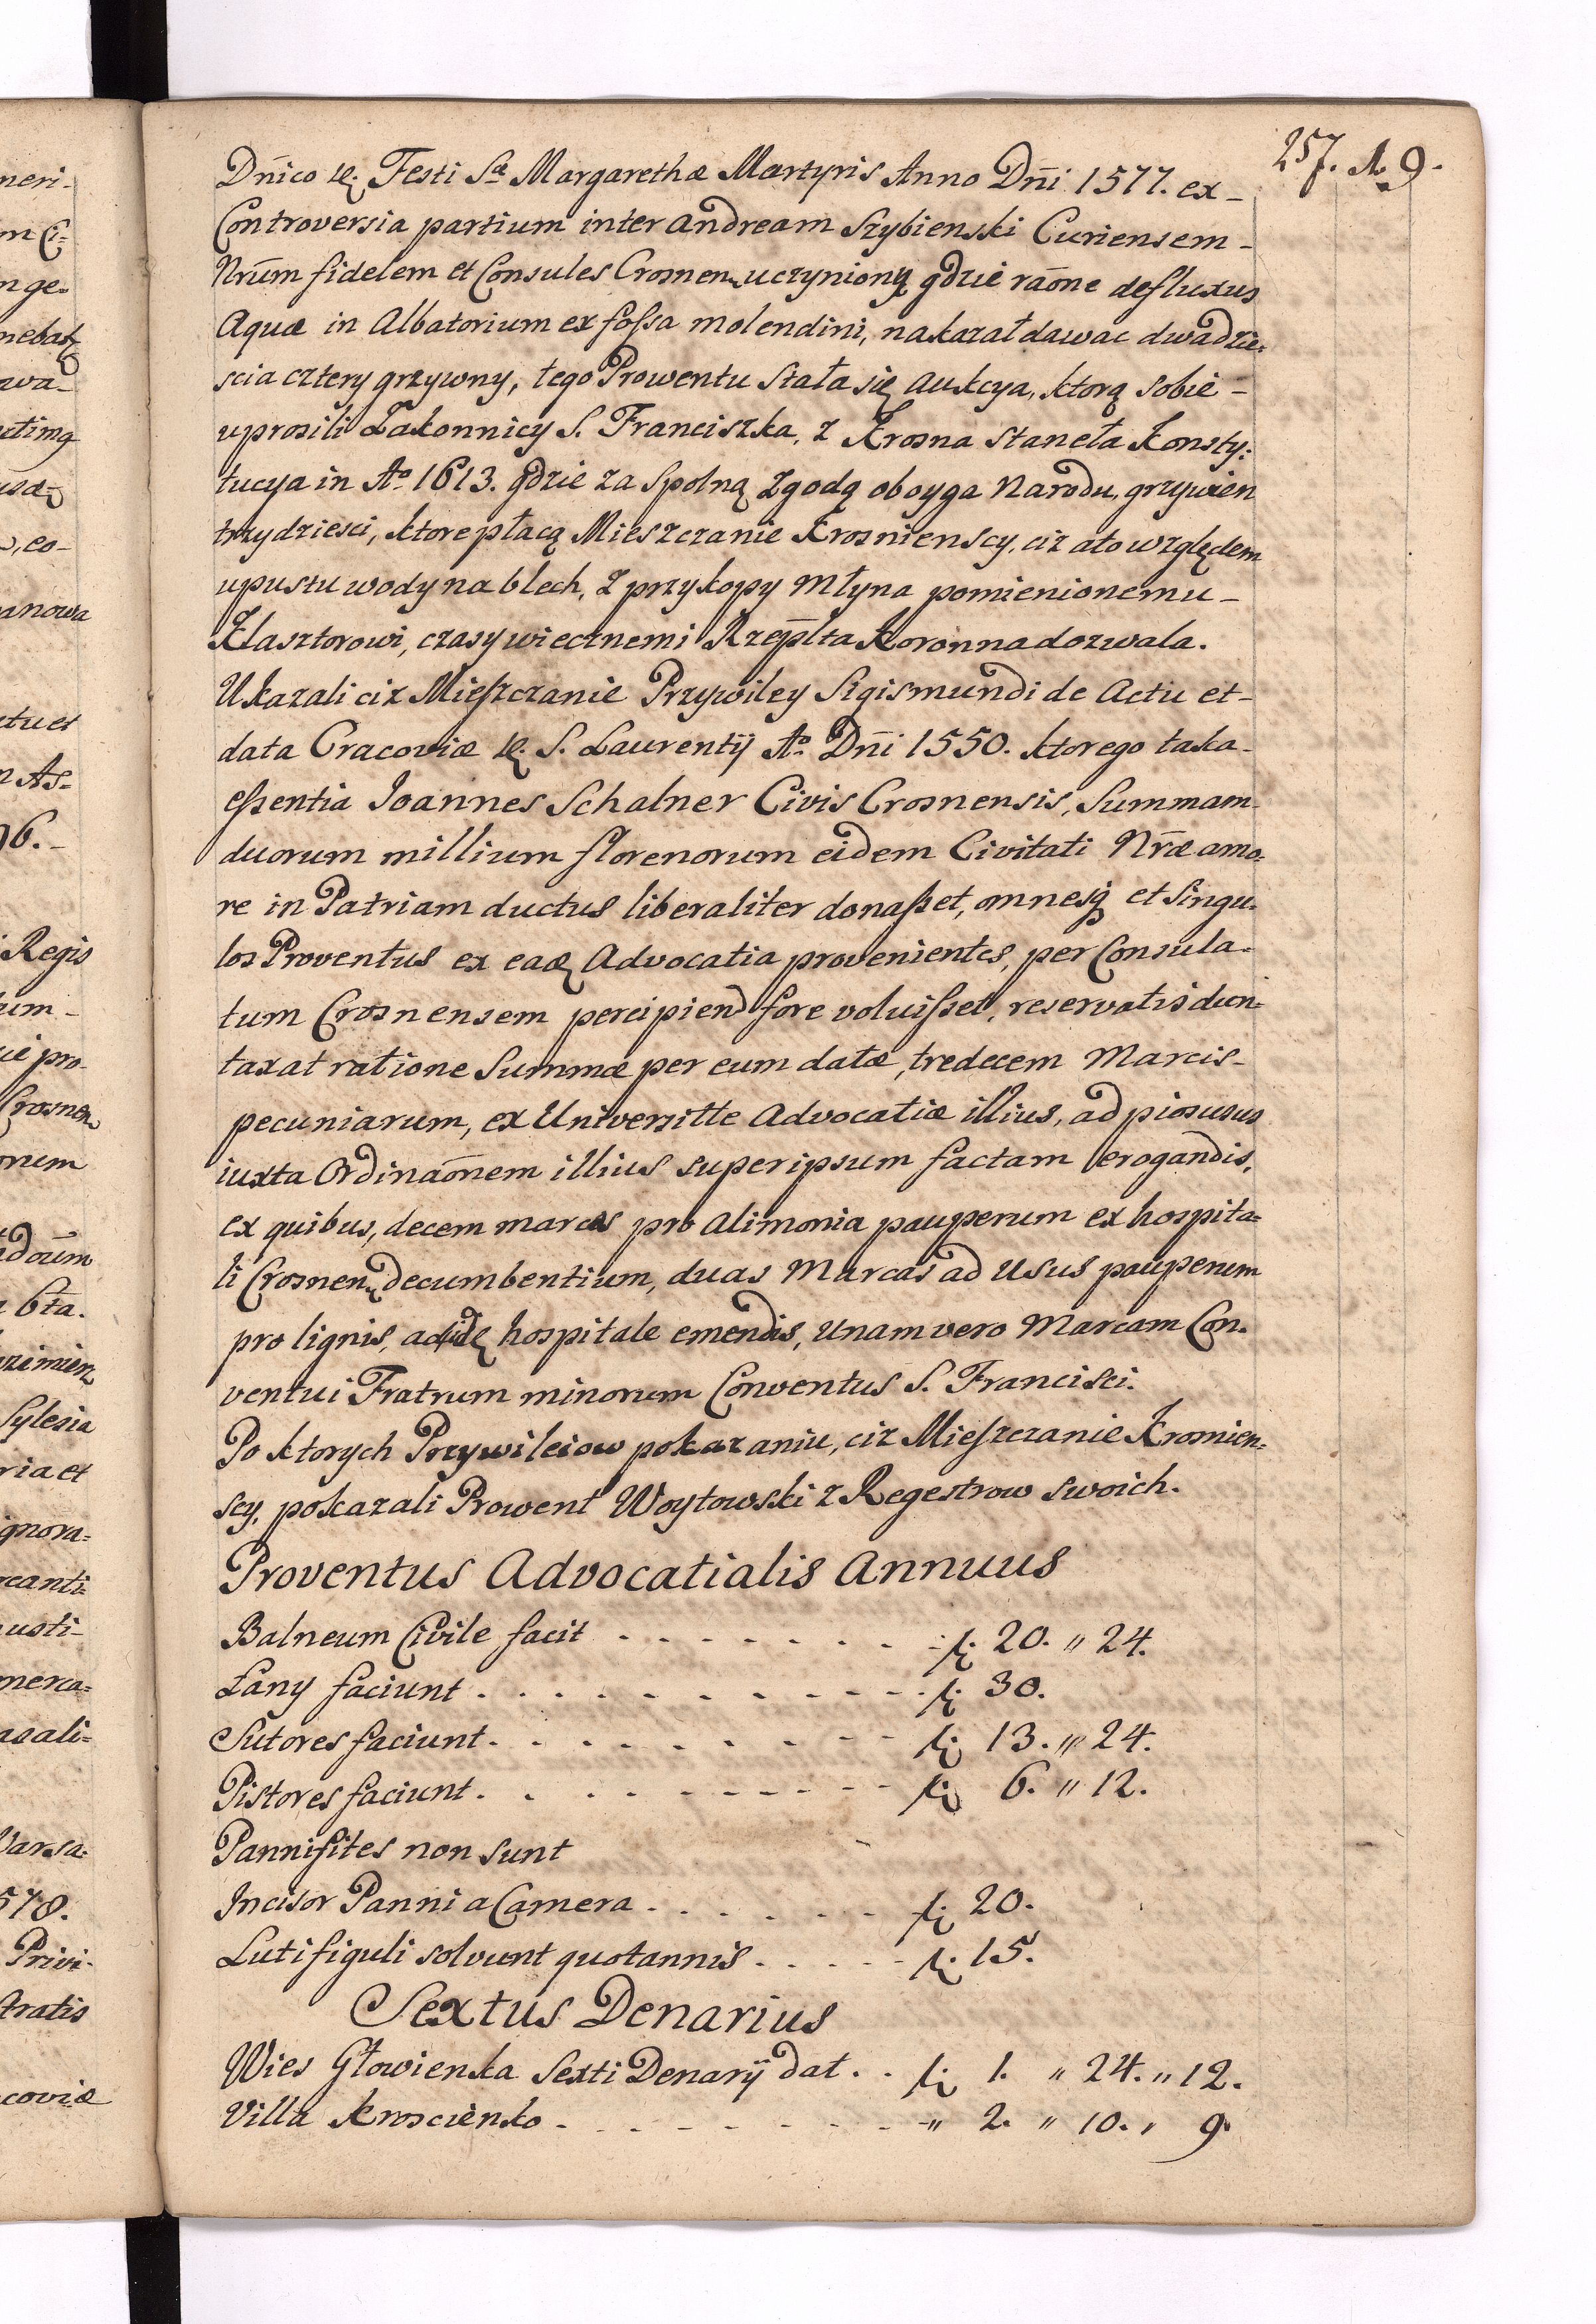 257. № 9.
Dn̄ico  Festi Sae Margarethæ Martyris Anno Dn̄i 1577. ex-
Controversia partium inter Andream Szybienski Curiensem-
Nrūm fidelem et Consules Crosnen. uczynioną gdzie raōne defluxus
Aquæ in Albatorium ex foſsa molendini, nakazał dawac dwadzie:
scia cztery grzywny, tego Prowentu stała się Aukcya, ktorą sobie-
uprosili Zakonnicy S. Franciszka, z Krosna staneła Konsty:
tucya in Ao 1613. gdzie za spolną zgodą oboyga Narodu, grzywien
trzydziesci, ktore płacą Mieszczanie Krosnienscy, ciz ato względem
upustu wody na blech, z przykopy Młyna pomienionemu-
Klasztorowi, czasy wiecznemi Rzepl̄ta Koronna dozwala.
Ukazali ciz Mieſzczanie Przywiley Sigismundi de Actu et-
data Cracoviæ  S. Laurentij Ao Dn̄i 1550. ktorego taka-
eſsentia Joannes Schalner Civis Crosnensis, Summam
duorum millium florenorum eidem Civitati Nr̄æ amo:
re in Patriam ductus liberaliter donaſset, omnesq et singu:
los Proventus ex eadę Advocatia provenientes, per Consula=
tum Crosnensem percipiend fore voluiſset, reservatis dun:
taxat ratione Summæ per eum datæ, tredecem Marcis-
pecuniarum, ex Universitte Advocatiæ illius, ad pios usus
iuxta Ordinaōnem illius super ipsum factam erogandis,
ex quibus, decem marcas pro alimonia pauperum ex hospita=
li Crosnen. decumbentium, duas Marcas ad Usus pauperum
pro lignis, ad idę hospitale emendis, Unam vero Marcam Con:
ventui Fratrum minorum Conventus S. Francisci.
Po ktorych Przywileiow pokazaniu, ciz Mieſzczanie Krosnien=
scy, pokazali Prowent Woytowski z Regestrow swoich.
Proventus Advocatialis Annuus
Balneum Civile facit . . . . . . . . f. 20. " 24.
Łany faciunt . . . . . . . . . . . f. 30.
Sutores faciunt . . . . . . . . . . f. 13. " 24.
Pistores faciunt . . . . . . . . . . f. 6. " 12.
Pannifites non sunt
Incisor Panni a Camera . . . . . . . f. 20.
Lutifiguli solvunt quotannis . . . . . f. 15.
Sextus Denarius
Wies Głowienka Sexti Denarij dat . . f. 1. " 24. " 12.
Villa Krosscienko . . . . . . . . . " 2. " 10. " 9.